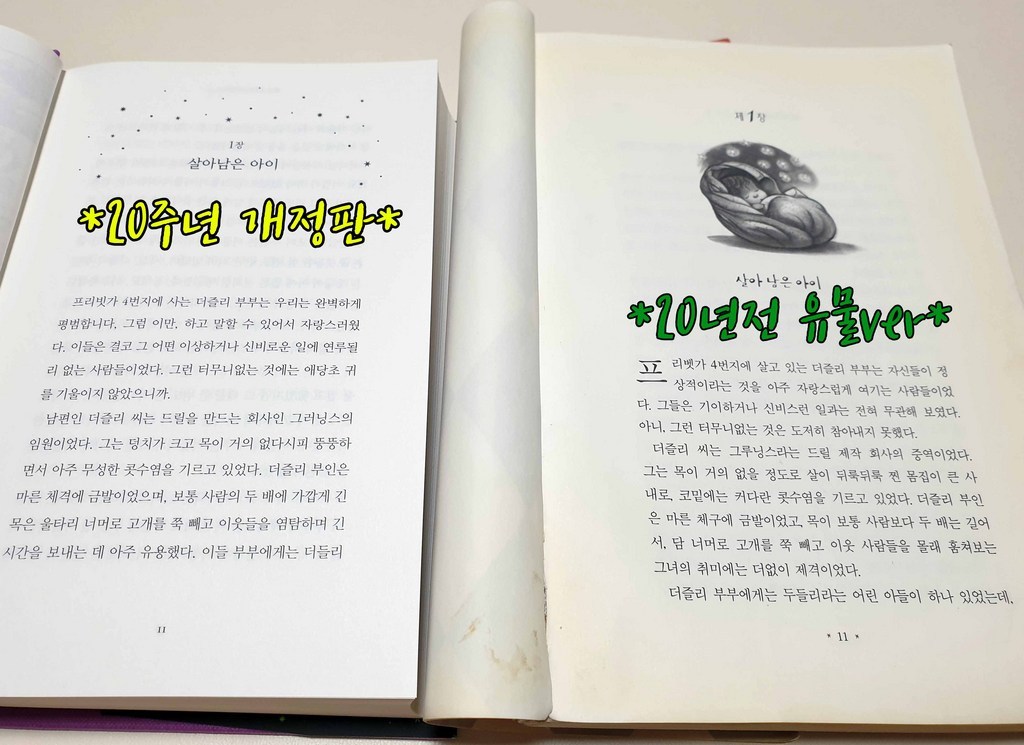 1장
살아남은 아이
*20주년 개정판*
프리벳가 4번지에 사는 더즐리 부부는 우리는 완벽하게
평범합니다, 그럼 이만, 하고 말할 수 있어서 자랑스러웠
다. 이들은 결코 그 어떤 이상하거나 신비로운 일에 연루될
리 없는 사람들이었다. 그런 터무니없는 것에는 애당초 귀
를 기울이지 않았으니까.
남편인 더즐리 씨는 드릴을 만드는 회사인 그러닝스의
임원이었다. 그는 덩치가 크고 목이 거의 없다시피 뚱뚱하
면서 아주 무성한 콧수염을 기르고 있었다. 더즐리 부인은
마른 체격에 금발이었으며, 보통 사람의 두 배에 가깝게 긴
목은 울타리 너머로 고개를 쭉 빼고 이웃들을 염탐하며 긴
시간을 보내는 데 아주 유용했다. 이들 부부에게는 더들리
11
제1장
살아 남은 아이
*20년전 유물ver*
프리벳가 4번지에 살고 있는 더즐리 부부는 자신들이 정
상적이라는 것을 아주 자랑스럽게 여기는 사람들이었
다. 그들은 기이하거나 신비스런 일과는 전혀 무관해 보였다.
아니, 그런 터무니없는 것은 도저히 참아내지 못했다.
더즐리 씨는 그루닝스라는 드릴 제작 회사의 중역이었다.
그는 목이 거의 없을 정도로 살이 뒤룩뒤룩 찐 몸집이 큰 사
내로, 코밑에는 커다란 콧수염을 기르고 있었다. 더즐리 부인
은 마른 체구에 금발이었고, 목이 보통 사람보다 두 배는 길어
서, 담 너머로 고개를 쭉 빼고 이웃 사람들을 몰래 훔쳐보는
그녀의 취미에는 더없이 제격이었다.
더즐리 부부에게는 두들리라는 어린 아들이 하나 있었는데,
* 11 *